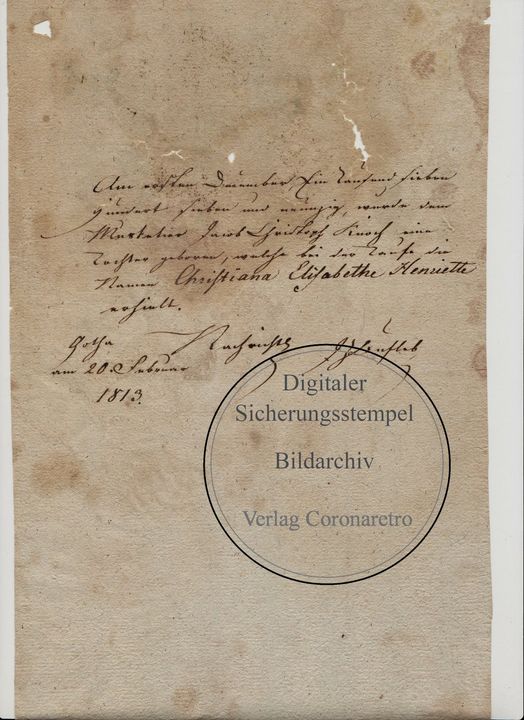 Am ersten December, Ein Tausend sieben
Hundert sieben und neunzig, wurde dem
Musketier Jacob Christoph Knoch eine
Tochter geboren, welche bei der Taufe die
Namen Christiana Elisabethe Henriette
erhielt.
Gotha
am 20. Februar
1813.
Digitaler
Sicherungsstempel
Bildarchiv
Verlag Coronaretro